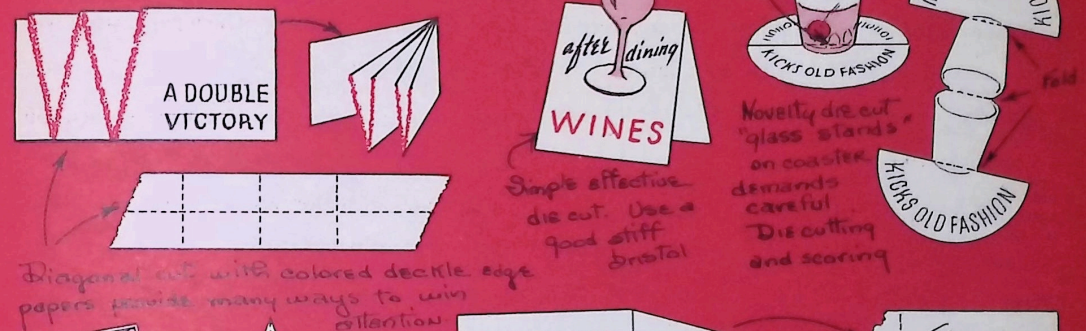 A DOUBLE
VICTORY
Diagonal cut with colored deckle edge
papers provide many ways to win
attention
after dining
WINES
Simple effective
die cut. Use a
good stiff
bristol
KICKS OLD FASHION
Novelty die cut
"glass stands"
on coaster
demands
careful
Die cutting
and scoring
Fold
KICKS OLD FASHION